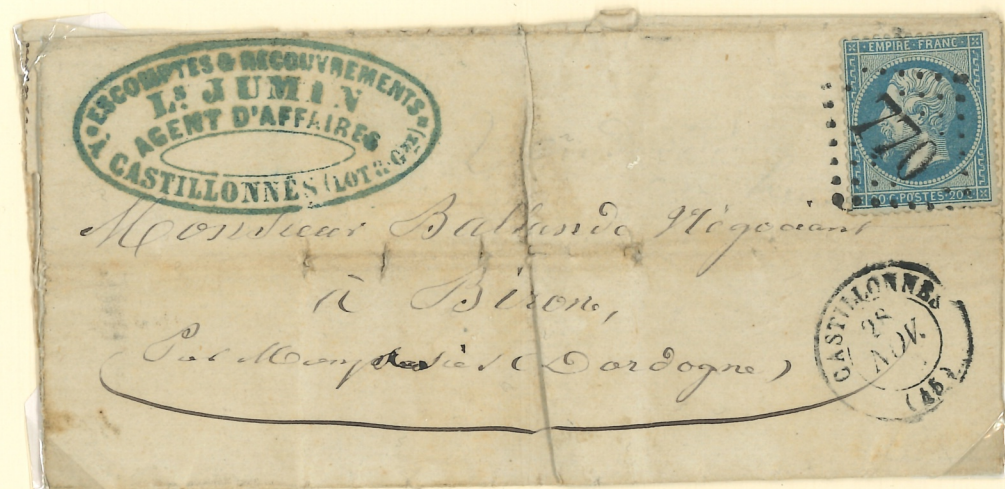 ESCOMPTES & RECOUVREMENTS
Ls JUMIN
AGENT D'AFFAIRES
À CASTILLONNÉS (LOT & Gne)
EMPIRE FRANC
770
POSTES 20
Monsieur Ballande Négociant
à Biron,
Par Monpazier (Dordogne)
CASTILLONNES
28
NOV.
(45)